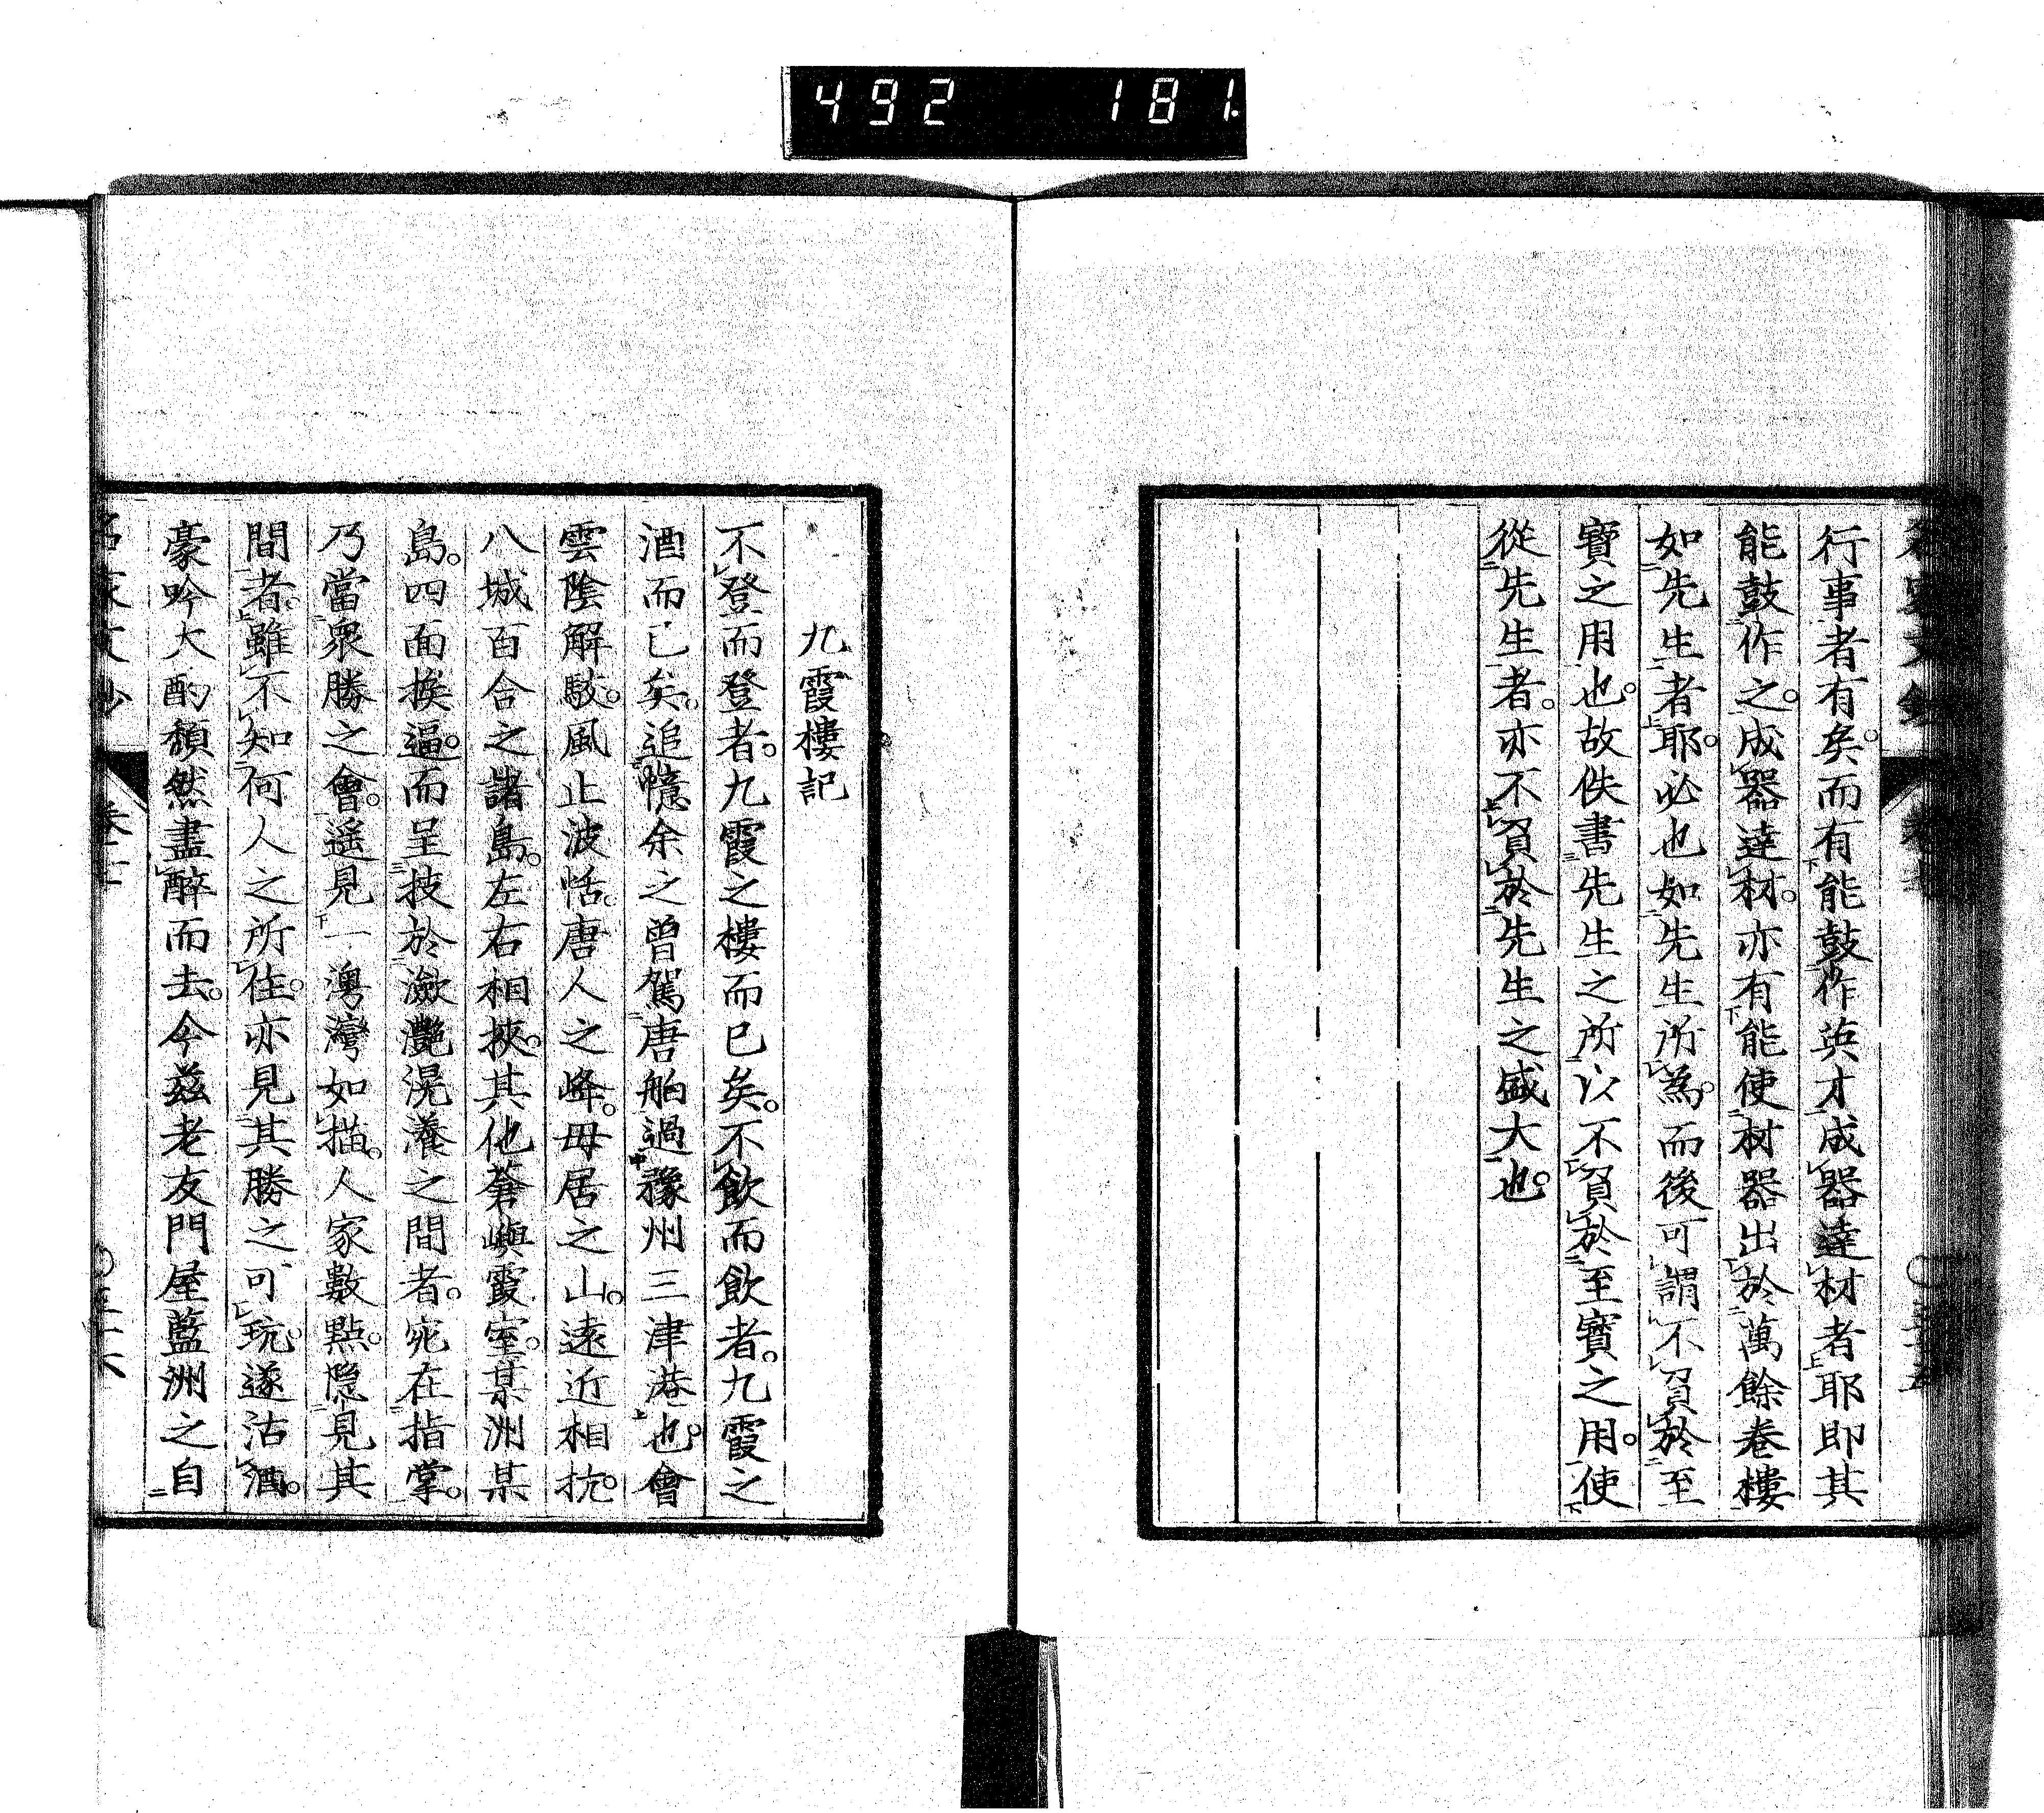 492 181.
行事者有矣。而有能鼓作英才成器達材者耶即其
能鼓作之。成器達材。亦有能使材器出於萬餘卷樓
如先生者耶。必也如先生所為。而後可謂不負於至
寶之用也。故佚書先生之所以不負於至寶之用。使
從先生者。亦不負於先生之盛大也。
九霞樓記
不登而登者。九霞之樓而已矣。不飲而飲者。九霞之
酒而已矣。追憶余之曾駕唐舶過豫州三津港也。會
雲陰解駁。風止波恬。唐人之峰。毋居之山。遠近相抗。
八城百合之諸島。左右相挾。其他蒼嶼霞室。某洲某
島。四面挨逼。而呈技於瀲灔滉瀁之間者。宛在指掌。
乃當衆勝之會。遥見一澳灣如描。人家數點。隠見其
間者。雖不知何人之所住。亦見其勝之可玩。遂沽酒。
豪吟大酌頹然盡醉而去。今兹老友門屋藍洲之自